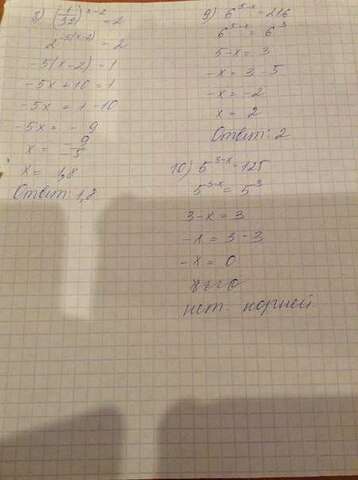 8) (1/32)^x-2 = 2
2^-5(x-2) = 2
-5(x-2) = 1
-5x+10 = 1
-5x = 1-10
-5x = -9
x = 9/5
x = 1,8
Ответ: 1,8
9) 6^5-x = 216
6^5-x = 6^3
5-x = 3
-x = 3-5
-x = -2
x = 2
Ответ: 2
10) 5^3-x = 125
5^3-x = 5^3
3-x = 3
-x = 3-3
-x = 0
нет корней